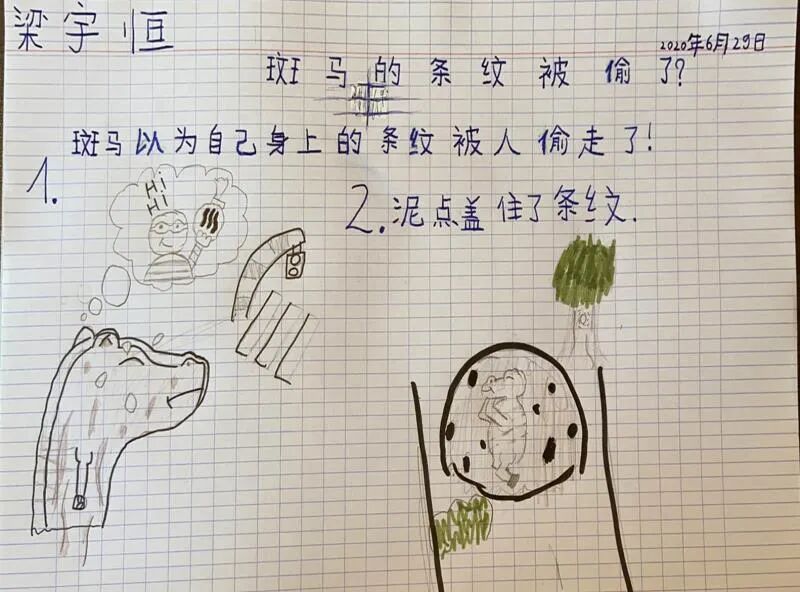 梁宇恒
2020年6月29日
斑马的条纹被偷了?
斑马以为自己身上的条纹被人偷走了!
1.
Hi
HI
2.泥点盖住了条纹.